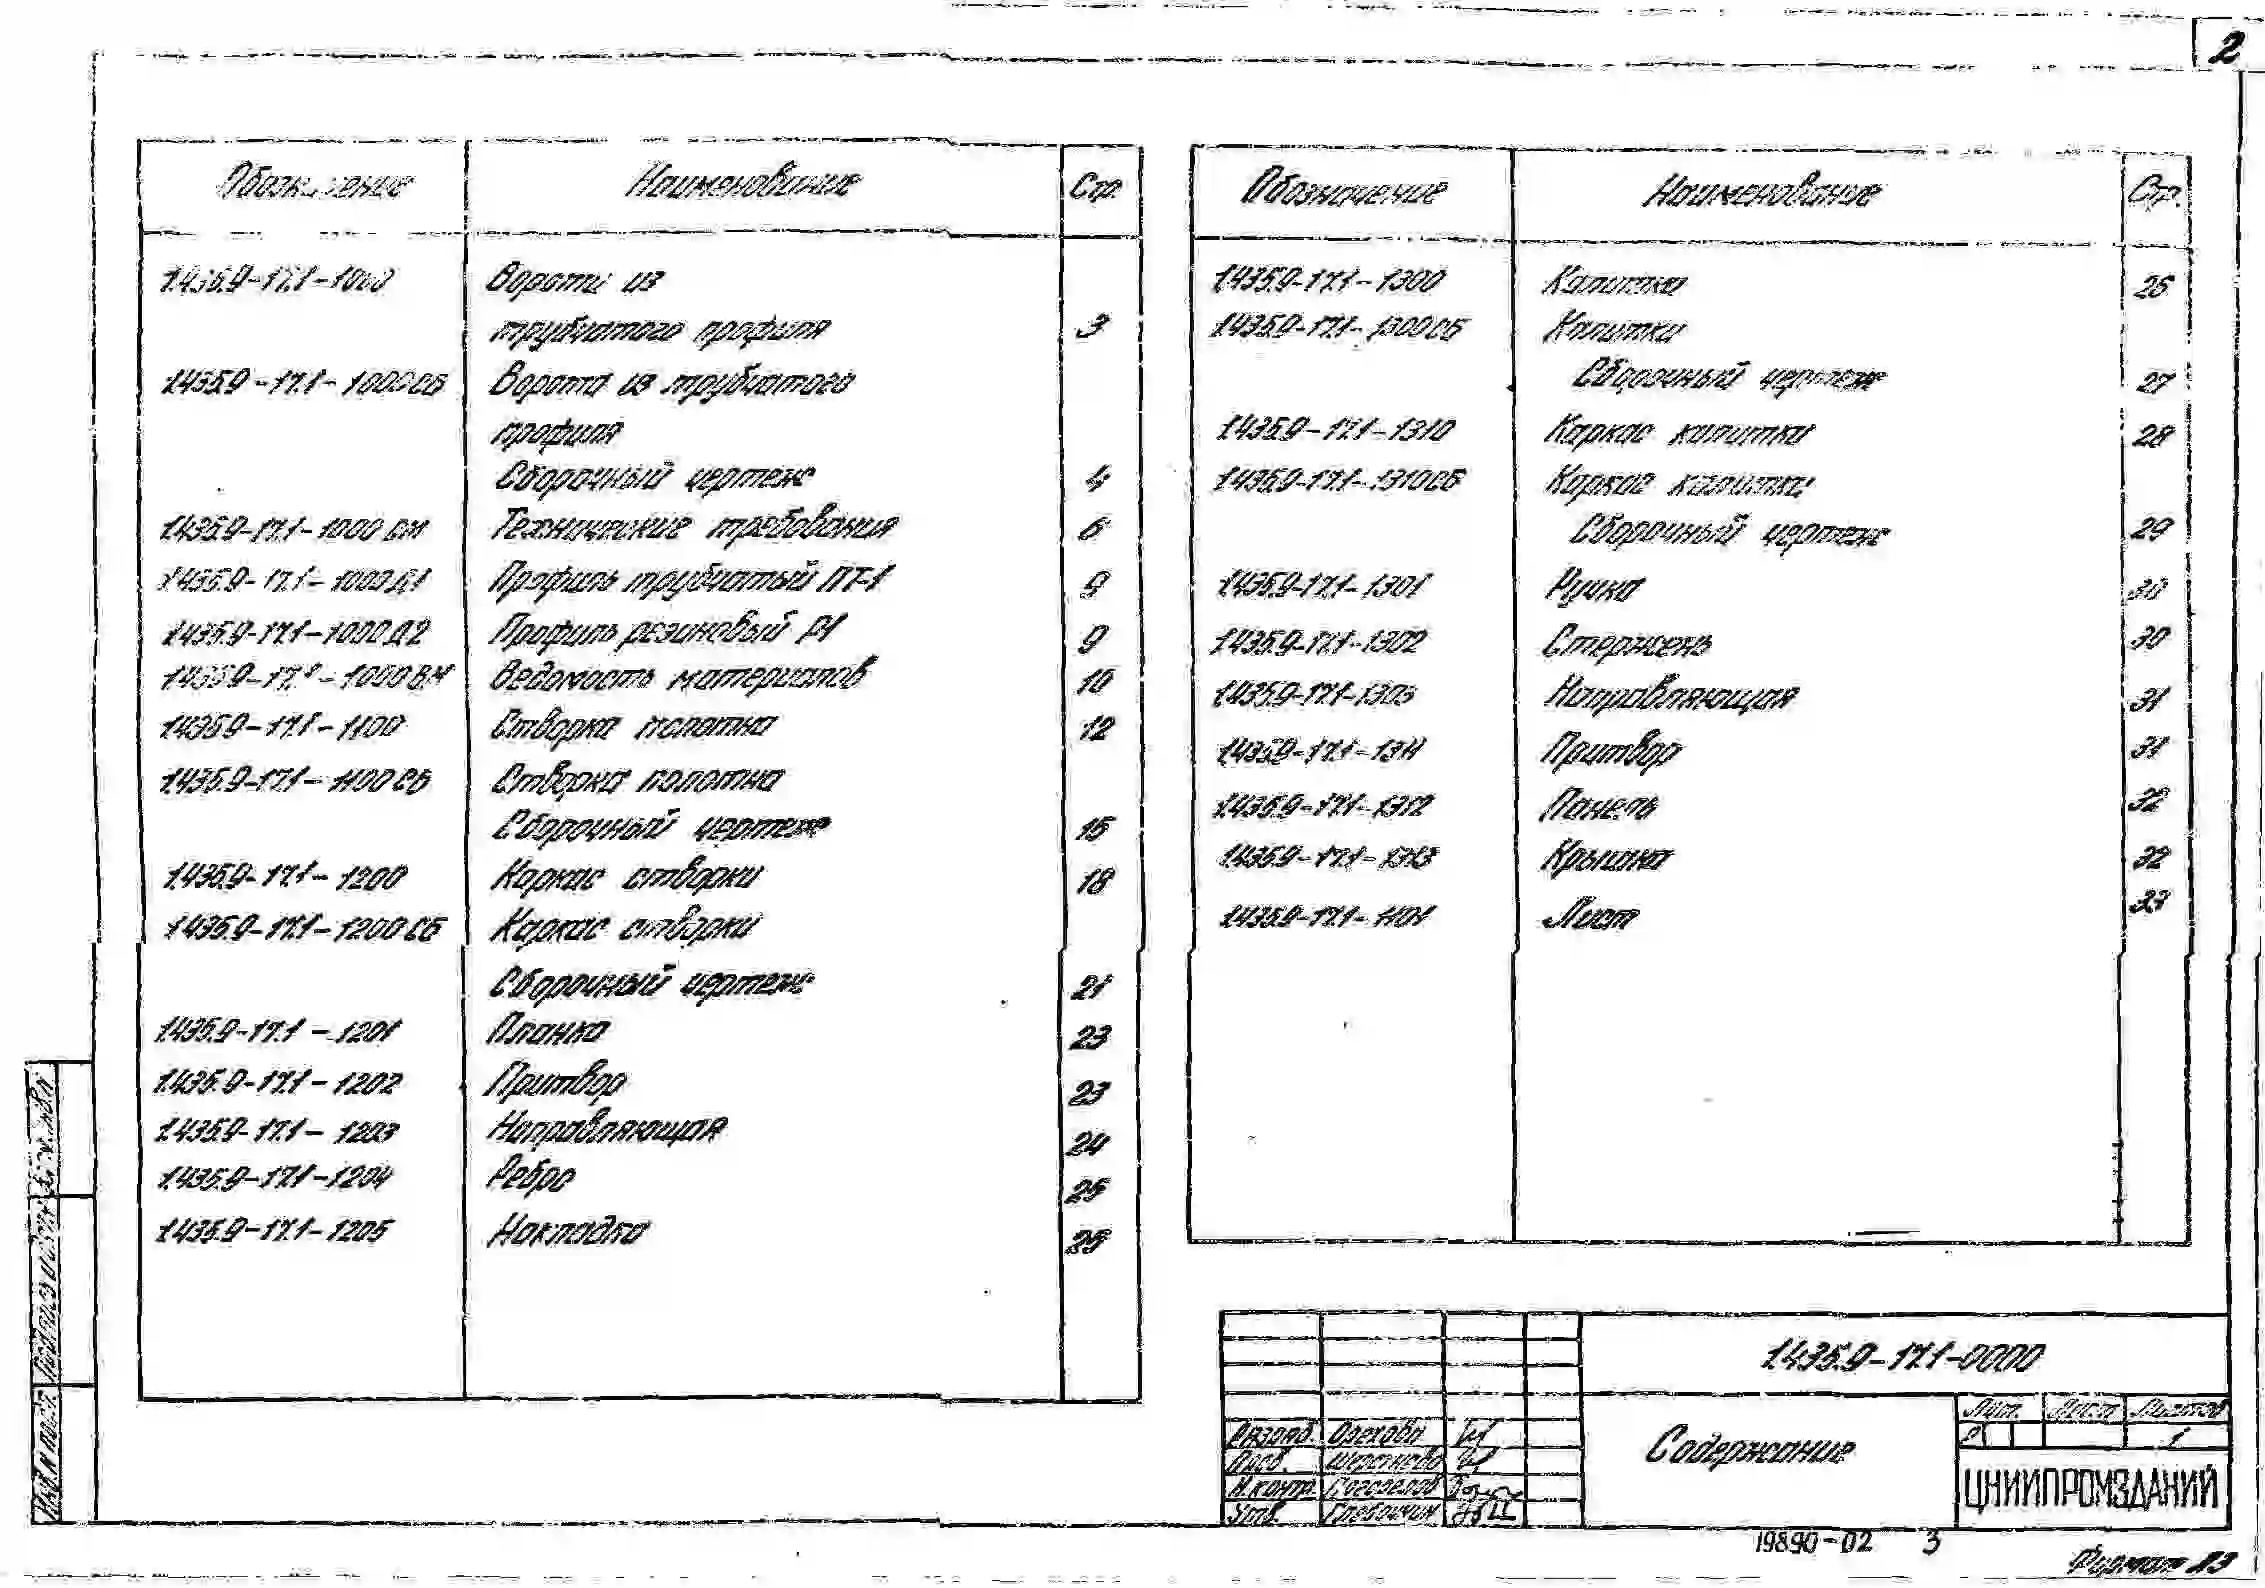 2
Обозначение Наименование Стр.
1.435.9-17.1-1000 Ворота из
трубчатого профиля 3
1.435.9-17.1-1000СБ Ворота из трубчатого
профиля
Сборочный чертеж 4
1.435.9-17.1-1000 Технические требования 6
1.435.9-17.1-1000Д1 Профиль трубчатый ПТ-1 9
1.435.9-17.1-1000Д2 Профиль резиновый Р1 9
1.435.9-17.1-1000ВМ Ведомость материалов 10
1.435.9-17.1-1100 Створка полотна 12
1.435.9-17.1-1100СБ Створка полотна
Сборочный чертеж 15
1.435.9-17.1-1200 Каркас створки 18
1.435.9-17.1-1200СБ Каркас створки
Сборочный чертеж 21
1.435.9-17.1-1201 Планка 23
1.435.9-17.1-1202 Притвор 23
1.435.9-17.1-1203 Направляющая 24
1.435.9-17.1-1204 Ребро 25
1.435.9-17.1-1205 Накладка 25
Обозначение Наименование Стр.
1.435.9-17.1-1300 Калитка 26
1.435.9-17.1-1300СБ Калитка
Сборочный чертеж 27
1.435.9-17.1-1310 Каркас калитки 28
1.435.9-17.1-1310СБ Каркас калитки
Сборочный чертеж 29
1.435.9-17.1-1301 Ручка 30
1.435.9-17.1-1302 Стержень 30
1.435.9-17.1-1303 Направляющая 31
1.435.9-17.1-1311 Притвор 31
1.435.9-17.1-1312 Панель 32
1.435.9-17.1-1313 Крышка 32
1.435.9-17.1-1101 Лист 33
1.435.9-17.1-0000
Разраб. Орехова
Пров.
Н.контр. Погорелов
Утв.
Содержание
Лит. Лист Листов
Р 1
ЦНИИПРОМЗДАНИЙ
Инв.N подл. Подпись и дата Взам.инв.N
19890-02 3
Формат А3